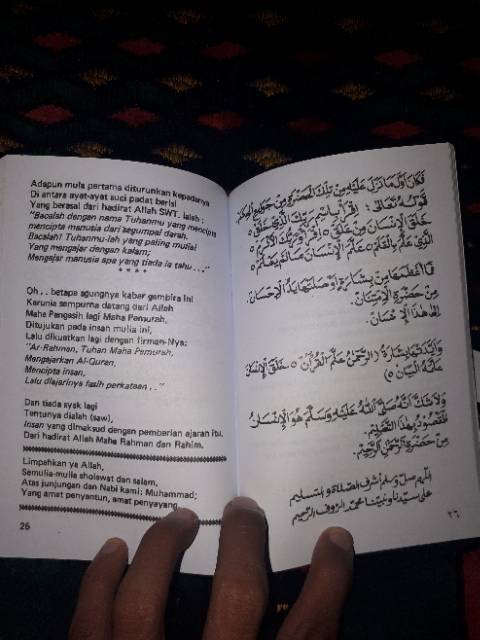 Adapun mula pertama diturunkan kepadanya
Di antara ayat-ayat suci padat berisi
Yang berasal dari hadirat Allah SWT. ialah :
"Bacalah dengan nama Tuhanmu yang mencipta
mencipta manusia dari segumpal darah.
Bacalah! Tuhanmu-lah yang paling mulia!
Yang mengajar dengan kalam;
Mengajar manusia apa yang tiada ia tahu . . ."
* * * *
Oh . . betapa agungnya kabar gembira ini
Karunia sempurna datang dari Allah
Maha Pengasih lagi Maha Pemurah,
Ditujukan pada insan mulia ini,
Lalu dikuatkan lagi dengan firman-Nya:
"Ar-Rahman, Tuhan Maha Pemurah,
Mengajarkan Al-Quran,
Mencipta insan,
Lalu diajarinya fasih perkataan . ."
Dan tiada syak lagi
Tentunya dialah (saw),
Insan yang dimaksud dengan pemberian ajaran itu,
Dari hadirat Allah Maha Rahman dan Rahim.
Limpahkan ya Allah,
Semulia-mulia sholawat dan salam,
Atas junjungan dan Nabi kami; Muhammad;
Yang amat penyantun, amat penyayang.
26
فَكَانَ أَوَّلُ مَا نَزَلَ عَلَيْهِ مِنْ تِلْكَ الْحَضْرَةِ مِنْ جَوَامِعِ الْحِكَمِ
قَوْلُهُ تَعَالَى ؛ اِقْرَأْ بِاسْمِ رَبِّكَ الَّذِي خَلَقَ ٥
خَلَقَ الْإِنْسَانَ مِنْ عَلَقٍ ٥ اِقْرَأْ وَرَبُّكَ الْأَكْرَمُ ٥
الَّذِي عَلَّمَ بِالْقَلَمِ ٥ عَلَّمَ الْإِنْسَانَ مَا لَمْ يَعْلَمْ ٥
فَمَا أَعْظَمَهَا مِنْ بِشَارَةٍ أَوْصَلَتْهَا يَدُ الْإِحْسَانِ
مِنْ حَضْرَةِ الْإِمْتِنَانِ
إِلَى هٰذَا الْإِنْسَانِ
وَأَيَّدَتْهَا بِشَارَةُ ( الرَّحْمٰنُ عَلَّمَ الْقُرْآنَ ٥ خَلَقَ الْإِنْسَانَ
عَلَّمَهُ الْبَيَانَ ٥ )
وَلَا شَكَّ أَنَّهُ صَلَّى اللهُ عَلَيْهِ وَسَلَّمَ هُوَ الْإِنْسَانُ
الْمَقْصُودُ بِهٰذَا التَّعْلِيْمِ
مِنْ حَضْرَةِ الرَّحْمٰنِ الرَّحِيْمِ
اللهم صل وسلم أشرف الصلاة والتسليم
على سيدنا ونبينا محمد الرؤوف الرحيم
٢٦